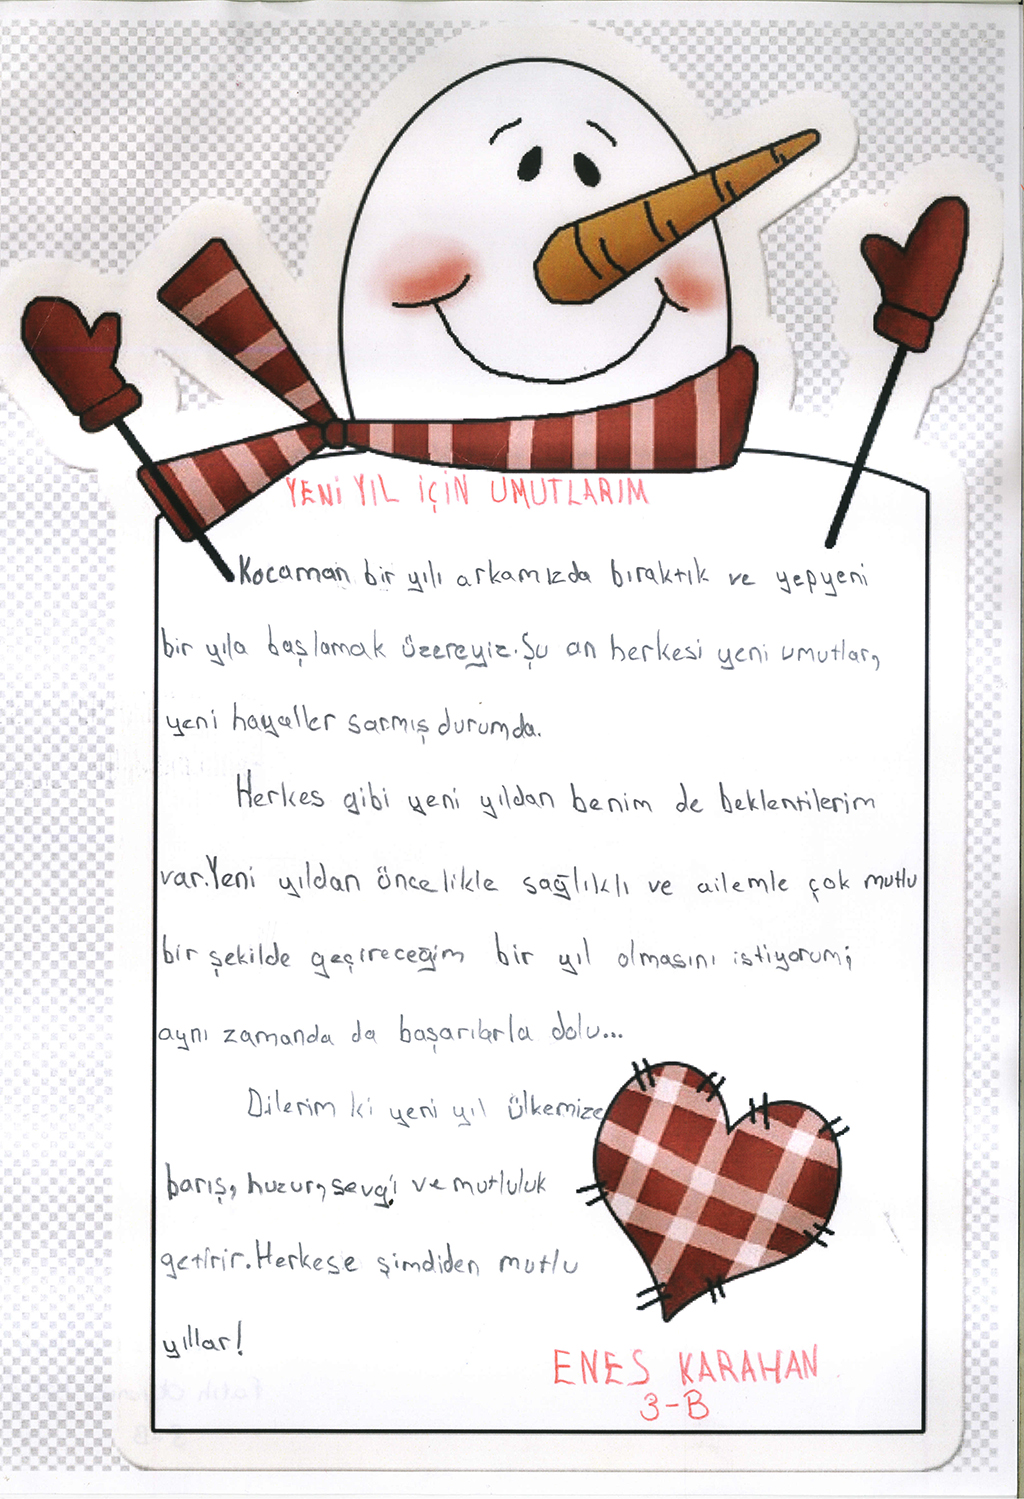 YENİ YIL İÇİN UMUTLARIM
Kocaman bir yılı arkamızda bıraktık ve yepyeni
bir yıla başlamak üzereyiz. Şu an herkesi yeni umutlar,
yeni hayaller sarmış durumda.
Herkes gibi yeni yıldan benim de beklentilerim
var. Yeni yıldan öncelikle sağlıklı ve ailemle çok mutlu
bir şekilde geçireceğim bir yıl olmasını istiyorum;
aynı zamanda da başarılarla dolu...
Dilerim ki yeni yıl ülkemize
barış, huzur, sevgi ve mutluluk
getirir. Herkese şimdiden mutlu
yıllar!
ENES KARAHAN
3-B